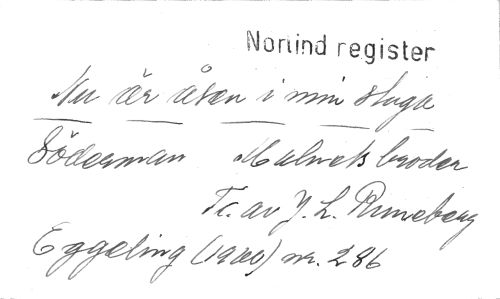 Norlind register
Nu är åsen i min stuga
Söderman Malneks broder
Tc. av J. L. Runeberg
Eggeling (1900) nr. 286